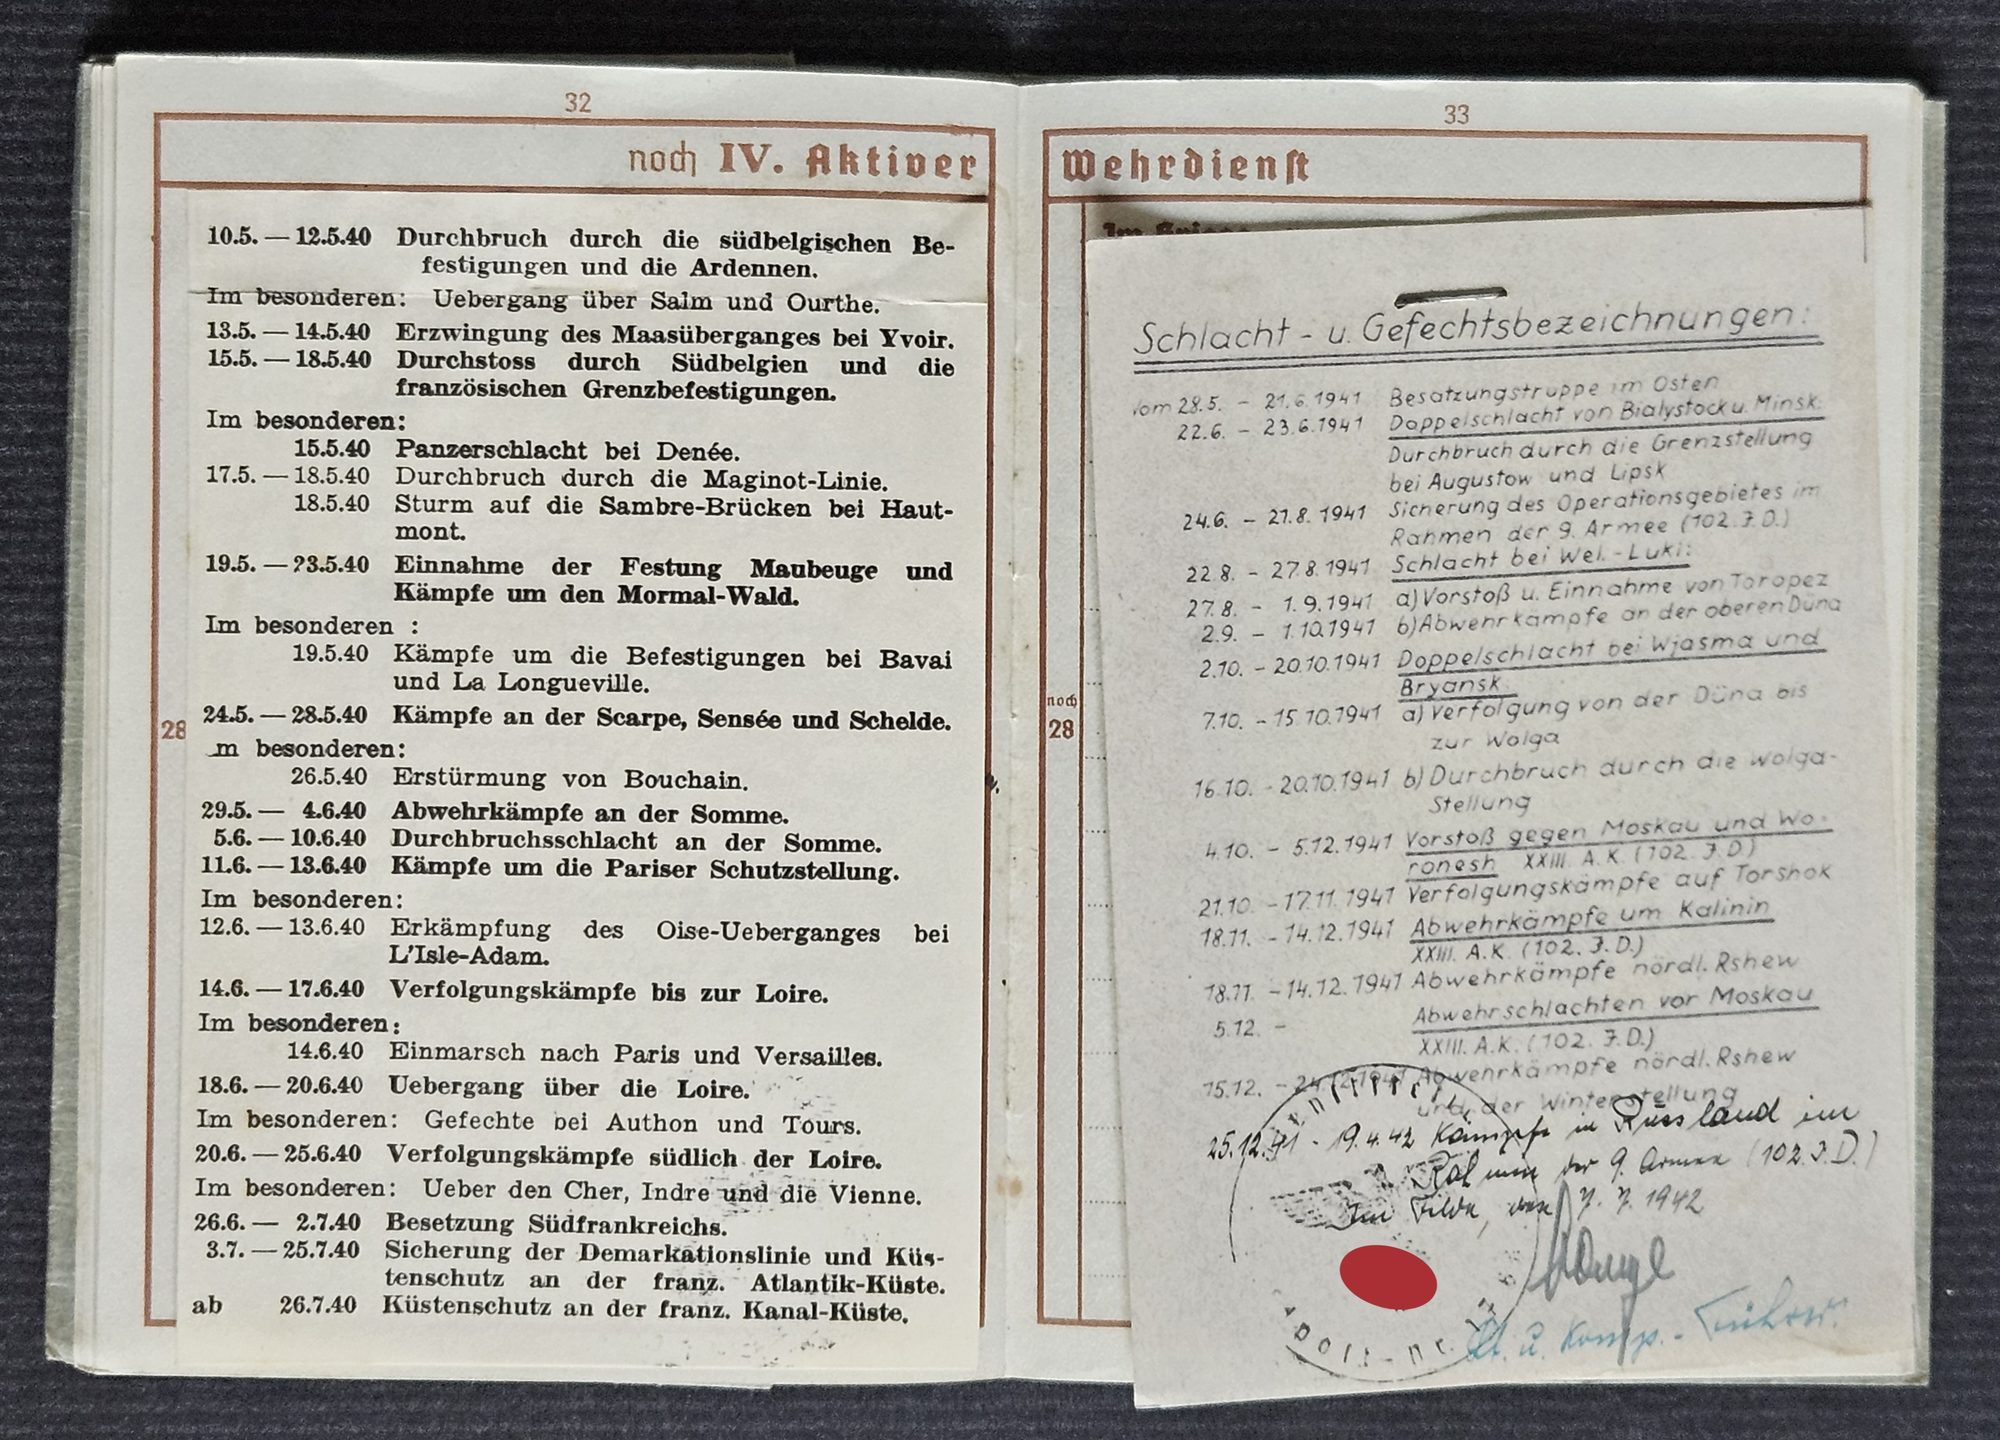 32
noch IV. Aktiver
10.5. — 12.5.40 Durchbruch durch die südbelgischen Be-
festigungen und die Ardennen.
Im besonderen: Uebergang über Salm und Ourthe.
13.5. — 14.5.40 Erzwingung des Maasüberganges bei Yvoir.
15.5. — 18.5.40 Durchstoss durch Südbelgien und die
französischen Grenzbefestigungen.
Im besonderen:
15.5.40 Panzerschlacht bei Denée.
17.5. — 18.5.40 Durchbruch durch die Maginot-Linie.
18.5.40 Sturm auf die Sambre-Brücken bei Haut-
mont.
19.5. — 23.5.40 Einnahme der Festung Maubeuge und
Kämpfe um den Mormal-Wald.
Im besonderen :
19.5.40 Kämpfe um die Befestigungen bei Bavai
und La Longueville.
28
24.5. — 28.5.40 Kämpfe an der Scarpe, Sensée und Schelde.
m besonderen:
26.5.40 Erstürmung von Bouchain.
29.5. — 4.6.40 Abwehrkämpfe an der Somme.
5.6. — 10.6.40 Durchbruchsschlacht an der Somme.
11.6. — 13.6.40 Kämpfe um die Pariser Schutzstellung.
Im besonderen:
12.6. — 13.6.40 Erkämpfung des Oise-Ueberganges bei
L'Isle-Adam.
14.6. — 17.6.40 Verfolgungskämpfe bis zur Loire.
Im besonderen:
14.6.40 Einmarsch nach Paris und Versailles.
18.6. — 20.6.40 Uebergang über die Loire.
Im besonderen: Gefechte bei Authon und Tours.
20.6. — 25.6.40 Verfolgungskämpfe südlich der Loire.
Im besonderen: Ueber den Cher, Indre und die Vienne.
26.6. — 2.7.40 Besetzung Südfrankreichs.
3.7. — 25.7.40 Sicherung der Demarkationslinie und Küs-
tenschutz an der franz. Atlantik-Küste.
ab 26.7.40 Küstenschutz an der franz. Kanal-Küste.
33
Wehrdienst
Im Kriege
noch
28
Schlacht - u. Gefechtsbezeichnungen:
Vom 28.5. - 21.6.1941 Besatzungstruppe im Osten
22.6. - 23.6.1941 Doppelschlacht von Bialystock u. Minsk:
Durchbruch durch die Grenzstellung
bei Augustow und Lipsk
24.6. - 21.8.1941 Sicherung des Operationsgebietes im
Rahmen der 9. Armee (102. J.D.)
22.8. - 27.8.1941 Schlacht bei Wel.-Luki:
27.8. - 1.9.1941 a) Vorstoß u. Einnahme von Toropez
2.9. - 1.10.1941 b) Abwehrkämpfe an der oberen Düna
2.10. - 20.10.1941 Doppelschlacht bei Wjasma und
Bryansk
7.10. - 15.10.1941 a) Verfolgung von der Düna bis
zur Wolga
16.10. - 20.10.1941 b) Durchbruch durch die Wolga-
Stellung
4.10. - 5.12.1941 Vorstoß gegen Moskau und Wo-
ronesh XXIII. A.K. (102. J.D.)
21.10. - 17.11.1941 Verfolgungskämpfe auf Torshok
18.11. - 14.12.1941 Abwehrkämpfe um Kalinin
XXIII. A.K. (102. J.D.)
18.11. - 14.12.1941 Abwehrkämpfe nördl. Rshew
5.12. - Abwehrschlachten vor Moskau
XXIII. A.K. (102. J.D.)
15.12. - 24.12.1941 Abwehrkämpfe nördl. Rshew
und der Winterstellung
25.12.41 - 19.4.42 Kämpfe in Russland im
Rahmen der 9. Armee (102. J.D.)
Im Felde, den 7. 7. 1942
Lt. u. Komp.-Führer